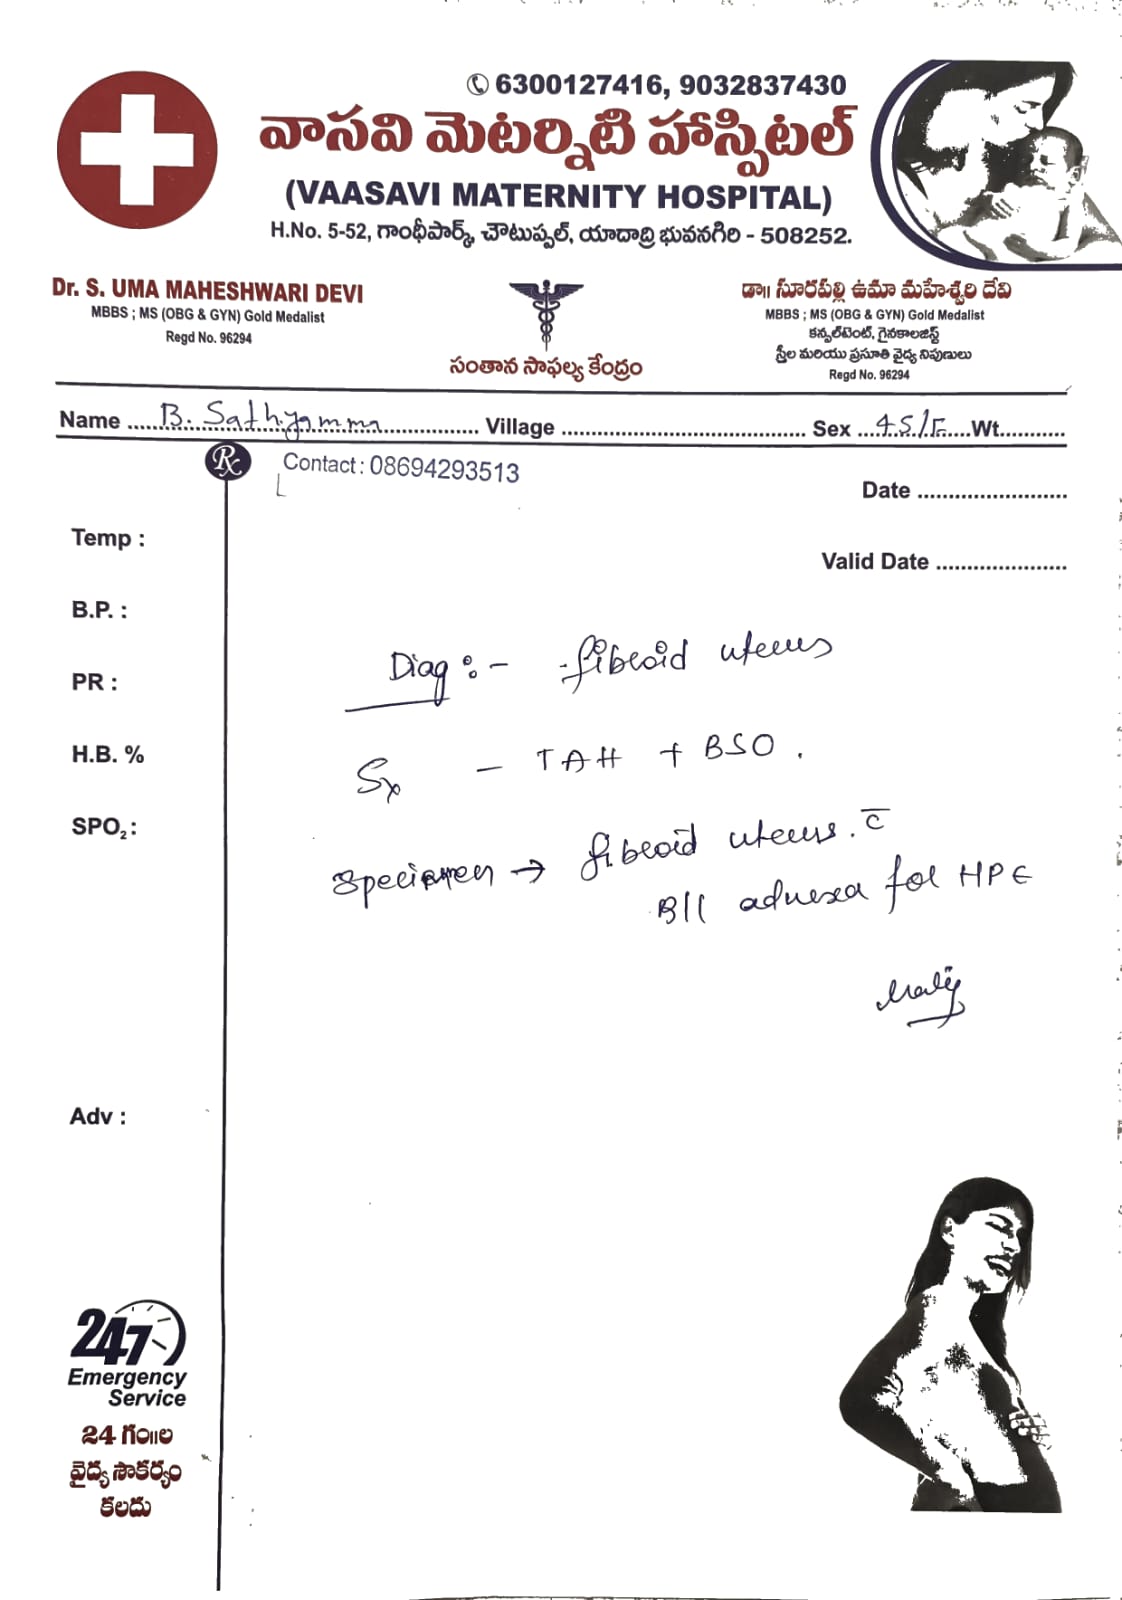 6300127416, 9032837430
వాసవి మెటర్నిటి హాస్పిటల్
(VAASAVI MATERNITY HOSPITAL)
H.No. 5-52, గాంధీపార్క్, చౌటుప్పల్, యాదాద్రి భువనగిరి - 508252.
Dr. S. UMA MAHESHWARI DEVI
MBBS ; MS (OBG & GYN) Gold Medalist
Regd No. 96294
సంతాన సాఫల్య కేంద్రం
డా॥ సూరపల్లి ఉమా మహేశ్వరి దేవి
MBBS ; MS (OBG & GYN) Gold Medalist
కన్సల్టెంట్, గైనకాలజిస్ట్
స్త్రీల మరియు ప్రసూతి వైద్య నిపుణులు
Regd No. 96294
Name B. Sathyamma Village Sex 45/F Wt.
Rx Contact : 08694293513
Date
Temp :
Valid Date
B.P. :
Diag :- fibroid uterus
PR :
H.B. %
Sx - TAH + BSO.
SPO2 :
Specimen → fibroid uterus. c̅
B/L adnexa for HPE
Adv :
247
Emergency
Service
24 గం॥ల
వైద్య సౌకర్యం
కలదు